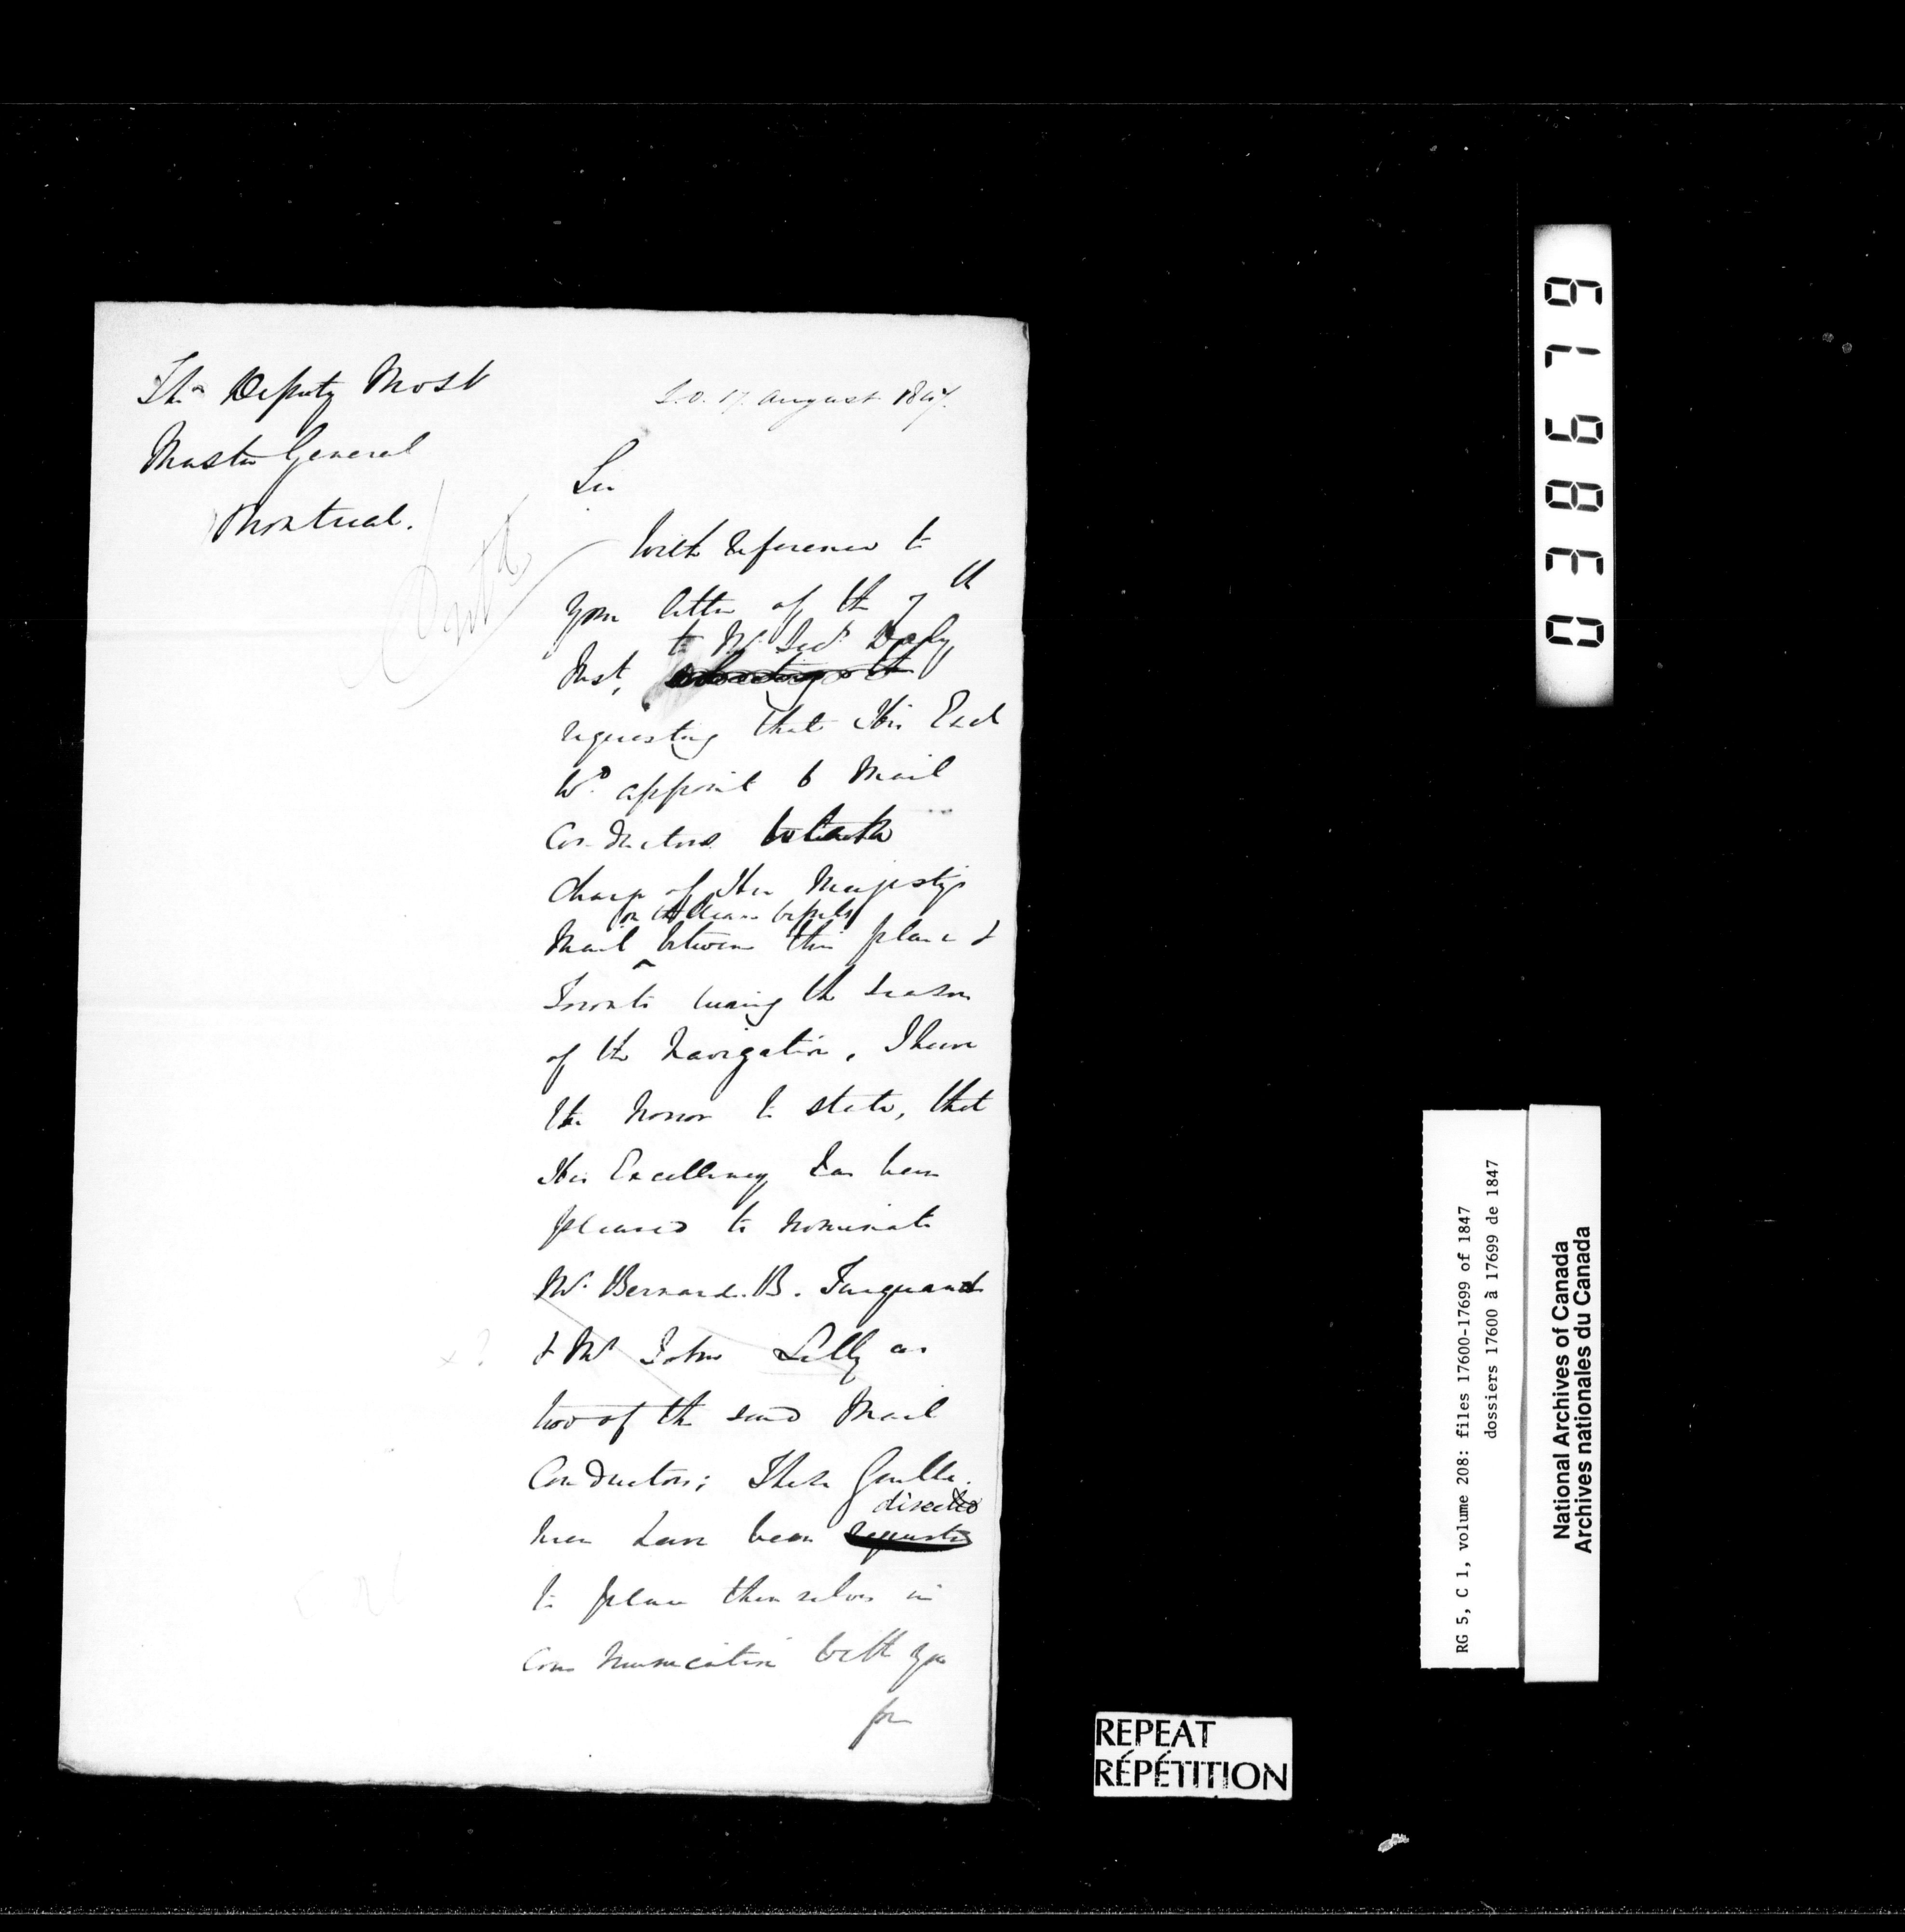 The Deputy Post
Master General
Montreal.
S.O. 17 August 1847.
Sir
With reference to
your letter of the 7th
to Mr Secy Daly
Inst,
requesting that His Excl
wd appoint 6 Mail
Conductors to take
charge of Her Majesty's
on the Steam
Mail between this place &
Toronto during the season
of the Navigation, I have
the honor to state, that
His Excellency has been
pleased to nominate
Mr Bernard. B. Farquand
& Mr John Lilly as
two of the said Mail
Conductors; These Gentle-
directed
men have been requested
to place themselves in
communication with you
for
Entd
038679
RG 5, C 1, volume 208: files 17600-17699 of 1847
dossiers 17600 à 17699 de 1847
National Archives of Canada
Archives nationales du Canada
REPEAT
RÉPÉTITION